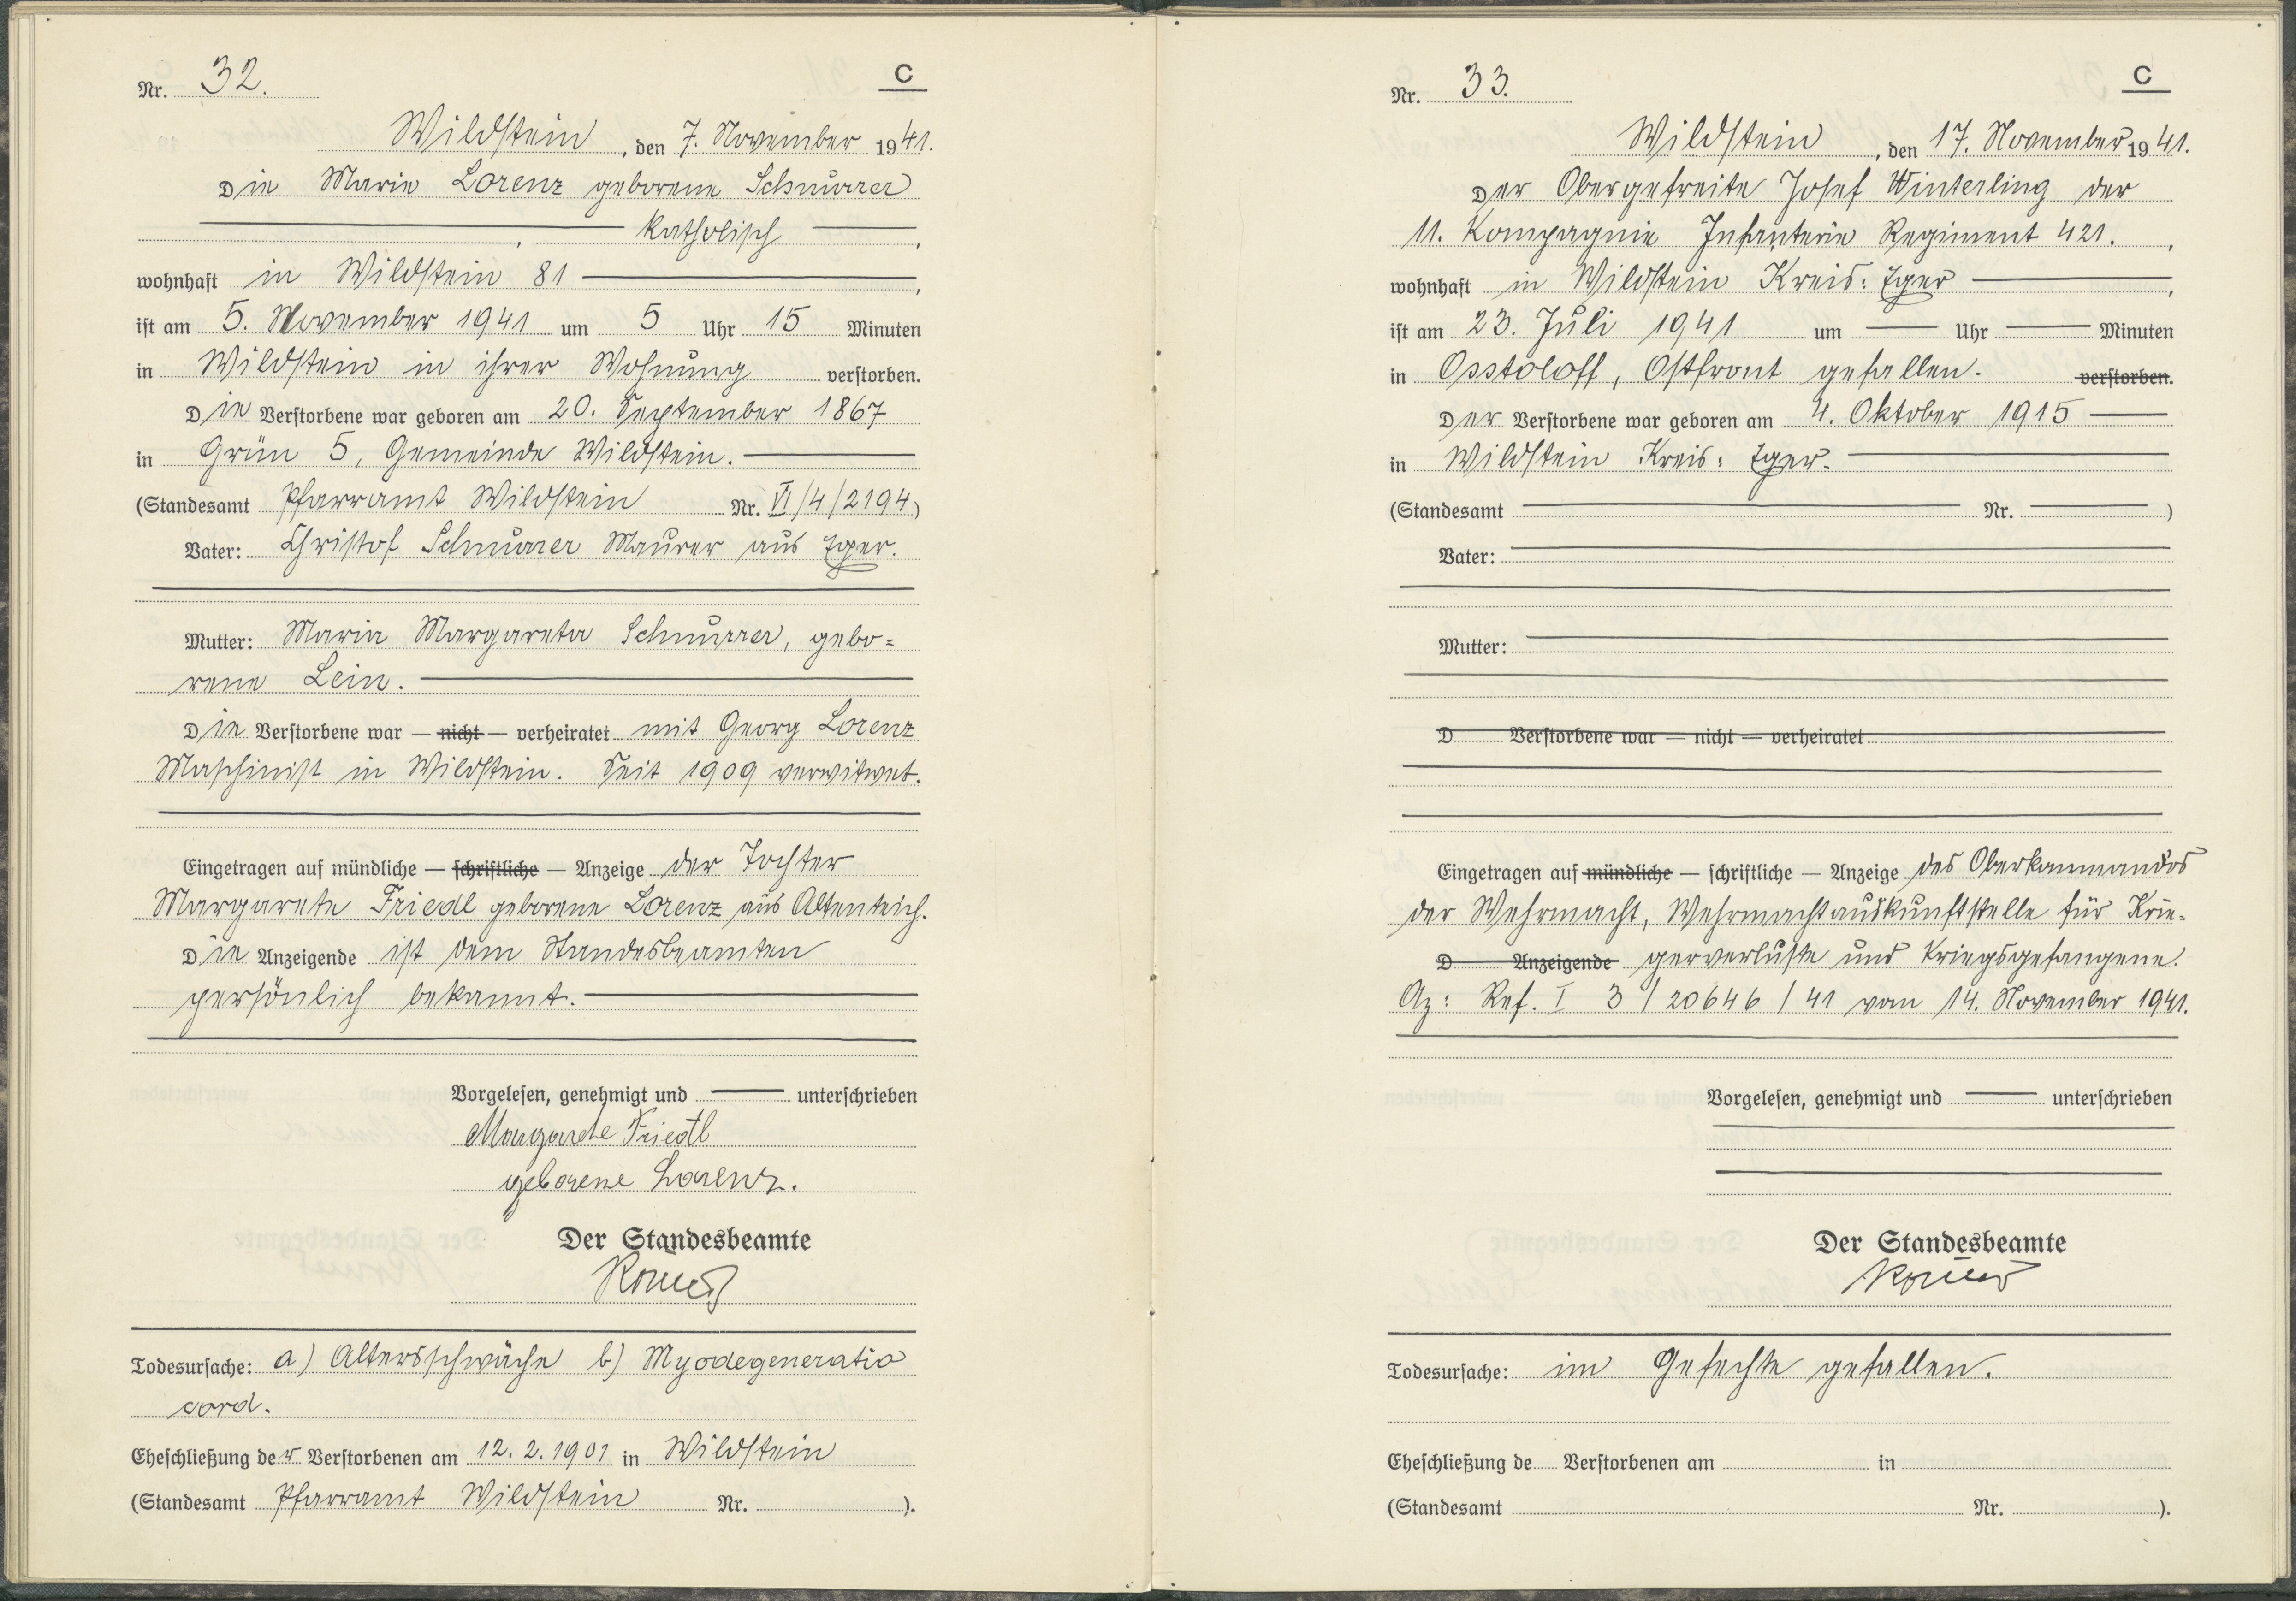 Nr. 32.
C
Wildstein, den 7. November 1941.
Die Marie Lorenz geborene Schnurrer
, katholisch ,
wohnhaft in Wildstein 81 ,
ist am 5. November 1941 um 5 Uhr 15 Minuten
in Wildstein in ihrer Wohnung verstorben.
Die Verstorbene war geboren am 20. September 1867
in Grün 5, Gemeinde Wildstein.
(Standesamt Pfarramt Wildstein Nr. VI/4/2194)
Vater: Christof Schnurrer Maurer aus Eger.
Mutter: Maria Margareta Schnurrer, gebo=
rene Lein.
Die Verstorbene war — nicht — verheiratet mit Georg Lorenz
Maschinist in Wildstein. Seit 1909 verwitwet.
Eingetragen auf mündliche — schriftliche — Anzeige der Tochter
Margarete Friedl geborene Lorenz aus Altenteich.
Die Anzeigende ist dem Standesbeamten
persönlich bekannt.
Vorgelesen, genehmigt und unterschrieben
Margarete Friedl
geborene Lorenz.
Der Standesbeamte
Todesursache: a) Altersschwäche b) Myodegeneratio
cord.
Eheschließung der Verstorbenen am 12.2.1901 in Wildstein
(Standesamt Pfarramt Wildstein Nr. ).
Nr. 33.
C
Wildstein, den 17. November 1941.
Der Obergefreite Josef Winterling der
11. Kompagnie Infanterie Regiment 421. ,
wohnhaft in Wildstein Kreis: Eger ,
ist am 23. Juli 1941 um Uhr Minuten
in Osstoloff, Ostfront gefallen. verstorben.
Der Verstorbene war geboren am 4. Oktober 1915
in Wildstein Kreis: Eger.
(Standesamt Nr. )
Vater:
Mutter:
D Verstorbene war — nicht — verheiratet
Eingetragen auf mündliche — schriftliche — Anzeige des Oberkommandos
der Wehrmacht, Wehrmachtauskunftstelle für Krie-
D Anzeigende gerverluste und Kriegsgefangene.
Az: Ref. I 3/20646/41 vom 14. November 1941.
Vorgelesen, genehmigt und unterschrieben
Der Standesbeamte
Todesursache: im Gefechte gefallen.
Eheschließung de Verstorbenen am in
(Standesamt Nr. ).